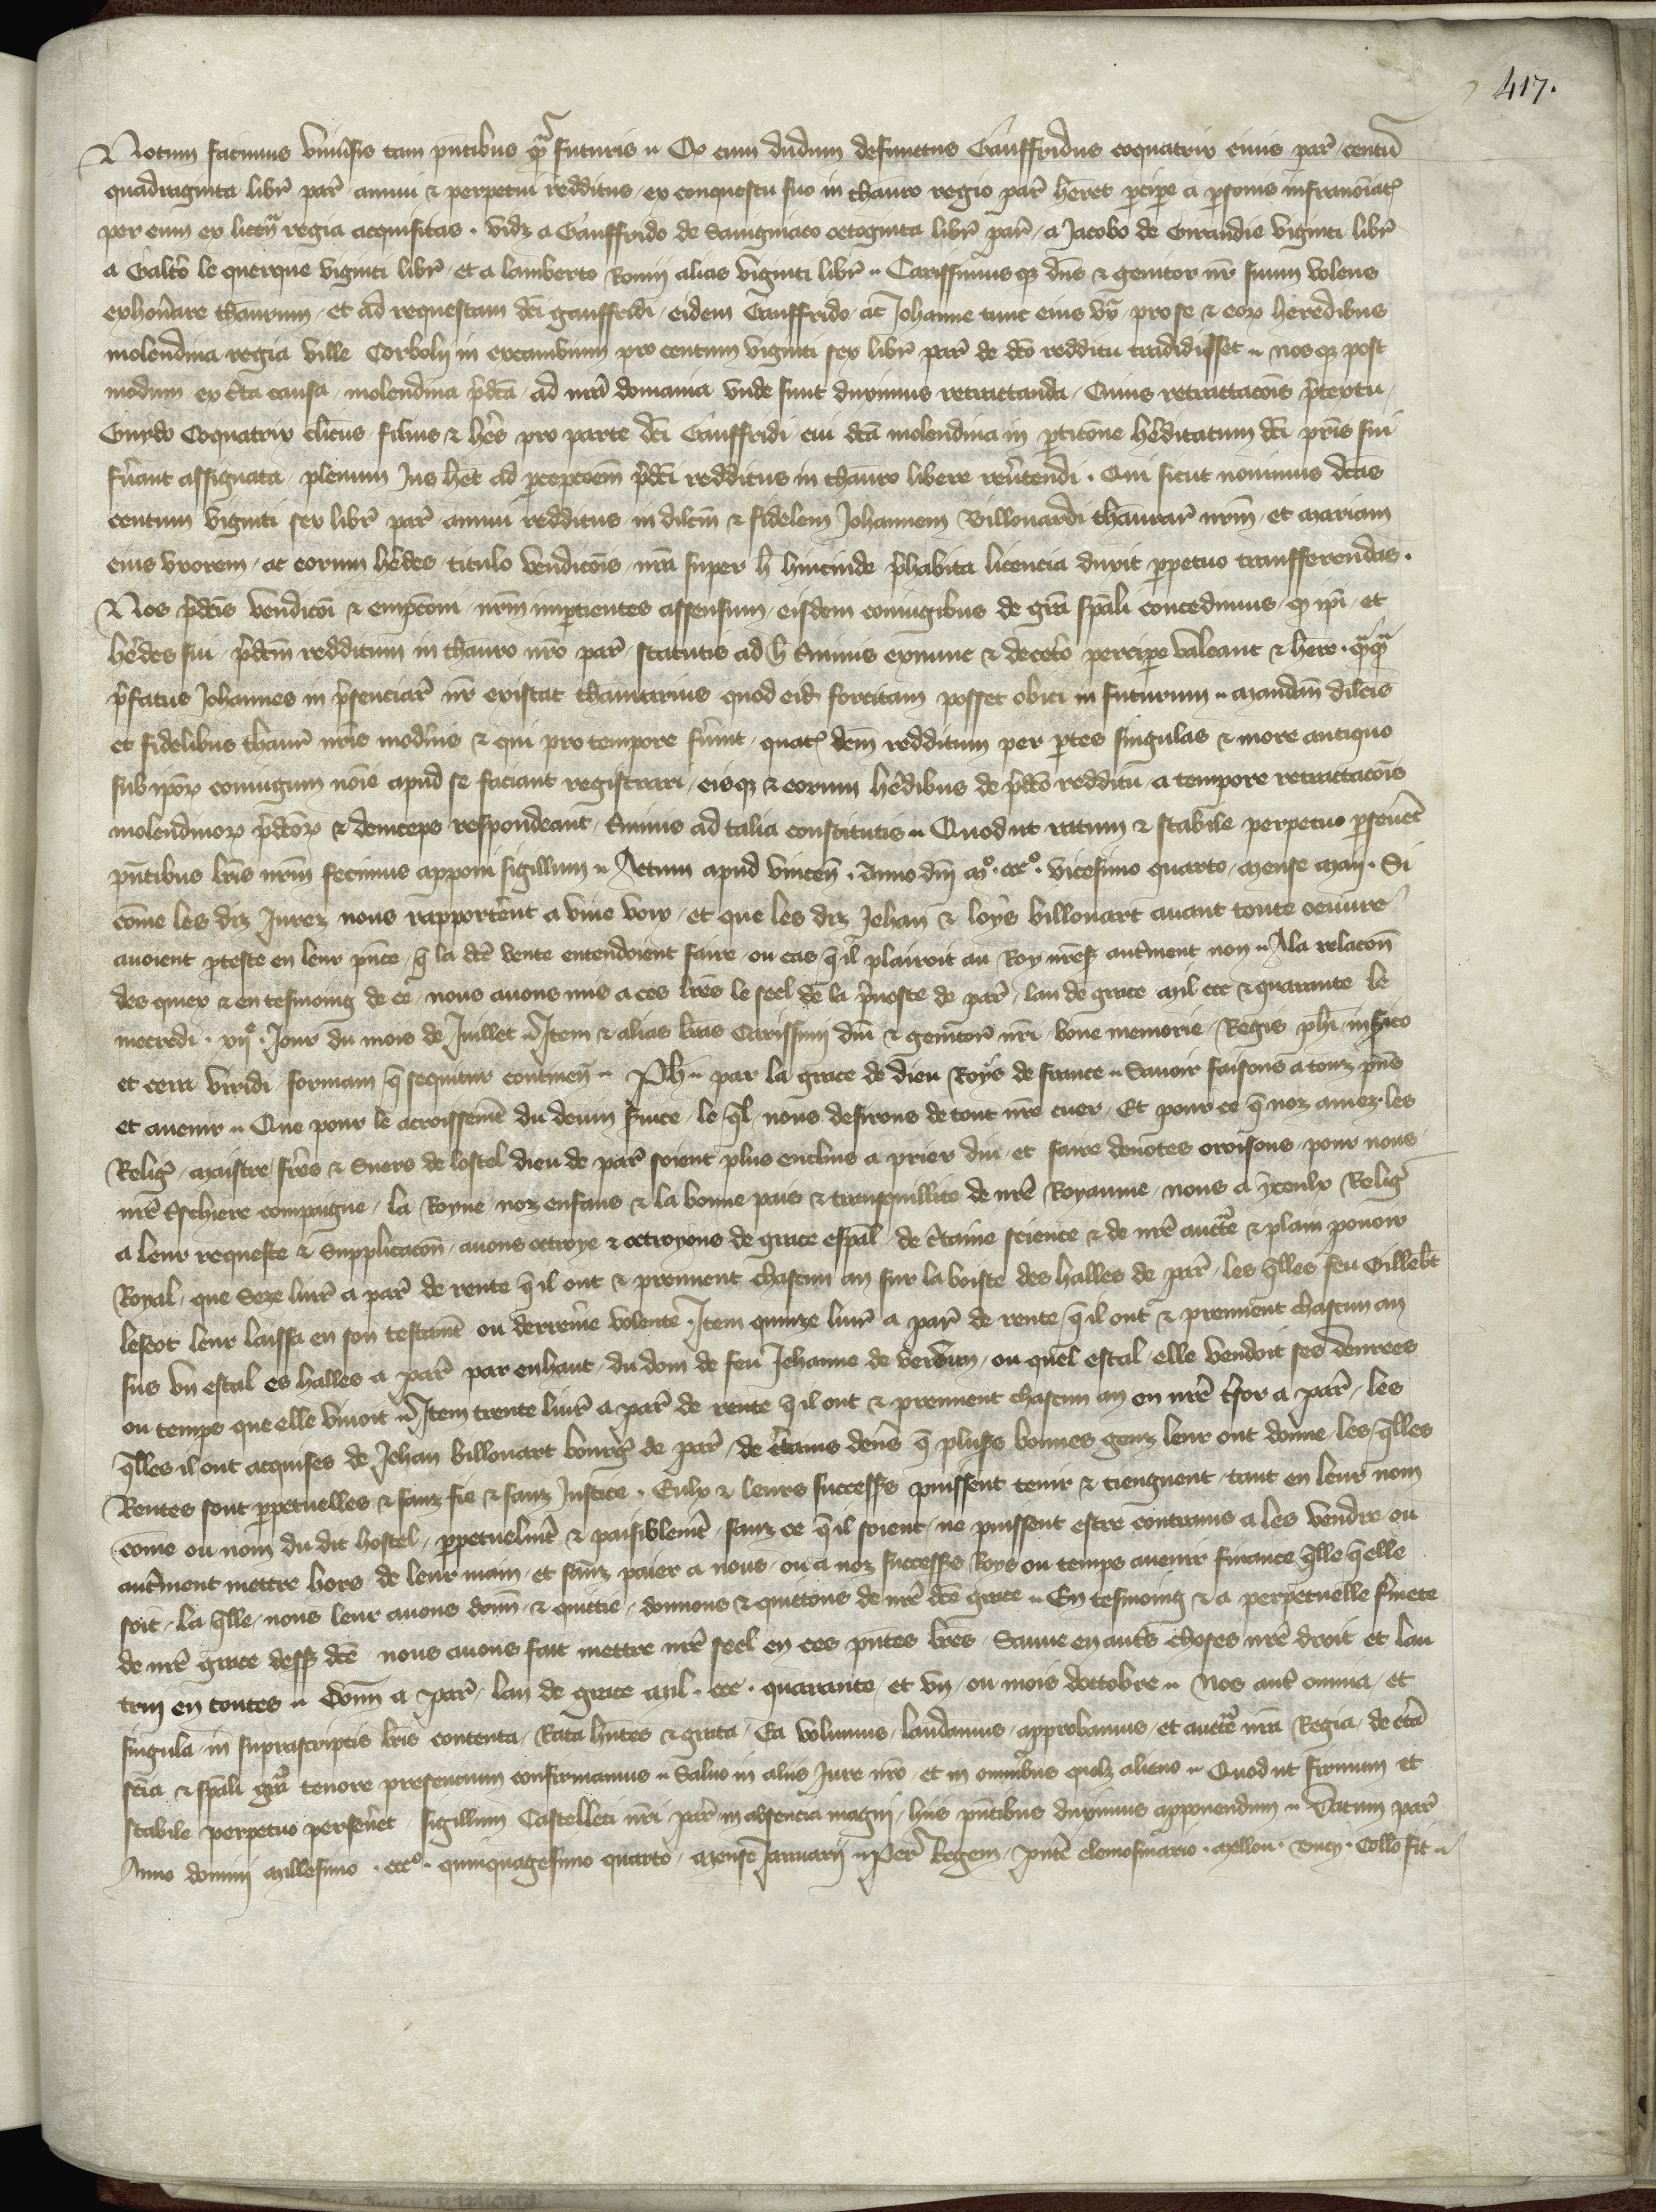 417.
Notum facimus univ̾sis tam pñtibus q̃ᵃ futuris ·· Qͩ cum dudum defunctus Gauffridus coquatrix civis par̃ centũ
quadraginta libr̃ par̃ annui & perpetui redditus ex conquestu suo in thauro regio par̃ h̃eret p̱cip̱e a p̱sonis infranoĩatꝭ
per eum ex licẽn regia acquisitas · vidꝫ a Gauffrido de Savigniaco octoginta libr̃ par̃ / a Jacobo de Girandie viginti libr̃
a Galt̾o le querque viginti libr̃ / et a lamberto Romũ alias viginti libr̃ ·· Carissimusqꝫ dñs & genitor nr̃ suum volens
exhon̾are thaurum / et ad requestam dc̃i gauffridi / eidem Gauffrido / ac Johanne tunc eius ux̃ / pro se & eoꝝ heredibus
molendina regia ville Corbolij in excambium pro centum viginti sex libr̃ par̃ de dc̃o redditu tradidisset ·· nosqꝫ post
modum ex c̃ta causa / molendina p̃dc̃a / ad nr̃a domania unde sunt duximus retractanda / Cuius retractacõis p̃textu /
Guydo Coquatrix clicus filius & h̃es pro parte dc̃i Gauffridi cui dc̃a molendina in p̱ticõne h̾editatum dc̃i p̃ris sui
fũant assignata / plenum Jus h̃et ad p̱cepcõem p̃dc̃i redditus in thauro libere rev̾tendi · Qui sicut novimus dc̃as
centum viginti sex libr̃ par̃ annui redditus in dilcm̃ & fidelem Johannem Billouardi thaurar̃ nr̃m / et Mariam
eius uxorem / ac eorum h̾edes titulo vendicõis nr̃a super h̾ hincinde p̃habita licencia duxit p̱petuo transferendas ·
Nos p̃dc̃is vendicõi & empcõni / nr̃m imp̱cientes assensum / eisdem coniugibus de gr̃a sp̃ali concedimus / qͩ ip̃i / et
h̾edes sui / p̃dc̃m redditum in thauro nr̃o par̃ / statutis ad h̾ t̾minis exnunc & decet̾o percip̱e valeant & h̃ere · q̃ᵃqᵃ
p̃fatus Johannes in p̃senciar̃ nr̃ existat thaurarius quod eiđ forcitam posset obici in futurum ·· mandam̃ dilc̃is
et fidelibus thaur̃ nr̃is mod̾nis & qui pro tempore fũint / quatꝭ dc̃m redditum per p̱tes singulas & more antiquo
sub ip̃oꝝ coniugum noĩe apud se faciant registrari / eisqꝫ & eorum h̾edibus de p̃dc̃o redditu a tempore retractacõis
molendinoꝝ p̃dc̃oꝝ & deinceps respondeant / t̾minis ad talia constitutis ·· Quod ut ratum & stabile perpetuo p̱sevet̃
pñtibus lr̃is nr̃m fecimus apponi sigillum ·· Actum apud vincen̄ · Anno dñi mͦ · cccͦ · vicesimo quarto / mense maij · Si
com̃e les diz Jurez nous rapport̾ent a vive voix / et que les diz Jehan & loys billouart avant toute oeuvre
avoient p̱teste en leur p̃nce / q̃ la dc̃e vente entendoient faire / ou cas q̃ il plairoit au Roy nr̃eß̃ aut̾ment non ·· Ala relacõn
des quiex & en tesmoing de ce / nous avons mis a ces lr̃es le seel de la p̃voste de par̃ / lan de grace mil ccc & quarante le
mecredi · xij̊ · Jour du mois de Juillet ·· Item & alias lr̃as Carissimi dñi & genitor̃ nr̃i / bone memorie / Regis ph̃i / in s̃ico
et cera viridi / formam q̃ sequitur continen̄ ·· Ph̾ ·· par la grace de dieu Roys de france ·· Savoir faisons a touz p̃ns
et avenir ·· Que pour le acroissem̃t du devin s̾vice / le q̃l nous desirons de tout nr̃e cuer / Et pour ce q̃ noz amez les
Relig̾ / maistre / fr̃es & Suers de lostel dieu de par̃ soient plus enclins a prier dieu / et faire devotes oroisons / pour nous
nr̃e t̾schiere compaigne / la Royne noz enfans & la bonne pais & transquillite de nr̃e Royaume / nous a yceulx Relig̾
a leur requeste & Supplicacõn / avons octroye & octroyons de grace esp̃al de c̾taine science & de nr̃e auctͭe & plain pouoir
Royal / que Seze livr̃ a par̃ de rente q̃ il ont & prennent chascun an sur la boiste des halles de par̃ / les q̃lles feu Gillebt̃
lescot leur laissa en son testam̃t ou derren̾e volente · Item quinze livr̃ a par̃ de rente q̃ il ont & prennent chascun an
sus un estal es halles a par̃ par enhaut / du don de feu Jehanne de verdun / ou quel estal / elle vendoit ses denrees
ou temps que elle vivoit ·· Item trente livr̃ a par̃ de rente q̃ il ont & prennent chascun an en nr̃e t̾sor a par̃ / les
q̃lles il ont acquises de Jehan billouart bourg̾ de par̃ / de c̾tains den̾s q̃ plus̾s bonnes genz leur ont donne / les q̃lles
Rentes sont p̱petuelles & sanz fie & sanz Justice · Eulx & leurs success̾s puissent tenir & tiengnent / tant en leur nom
com̃e ou nom du dit hostel / p̱petuelm̃t & paisiblem̃t sanz ce q̃ il soient / ne puissent estre contrains a les vendre ou
aut̾ment mettre hors de leur main / et sanz paier a nous / ou a noz success̾s Roys ou temps avenir finance q̃lle q̃ elle
soit / la q̃lle / nous leur avons donn̄ & quittie / donnons & quittons de nr̃e dc̃e grace ·· En tesmoing & a perpetuelle f̾mete
de nr̃e grace dessß̃ dc̃e / nous avons fait mettre nr̃e seel en ces p̃ntes lr̃es / Sauve en aut̾s choses nr̃e droit et lau
truy en toutes ·· Donn̄ a par̃ / lan de grace mil · ccc · quarante / et un / ou mois doctobre ·· Nos aut̾ omnia / et
singula in suprascriptis lr̃is contenta / Rata h̃ntes & grata / Ea volumus / laudamus / approbamus / et auctͭe nr̃a Regia / de c̾ta
sc̃ia & sp̃ali gr̃a tenore presencium confirmamus ·· Salvo in aliis Jure nr̃o / et in omnibus quolꝫ alieno ·· Quod ut firmum et
stabile perpetuo persev̾et / sigillum Castelleti nr̃i par̃ in absencia magni / hiis p̃ntibus duximus apponendum ·· Datum par̃
Anno domini millesimo · cccͦ · quinquagesimo quarto / mense Januarij ·· Per Regem / p̃nte elemosinario · mellou · Collõ fit ··